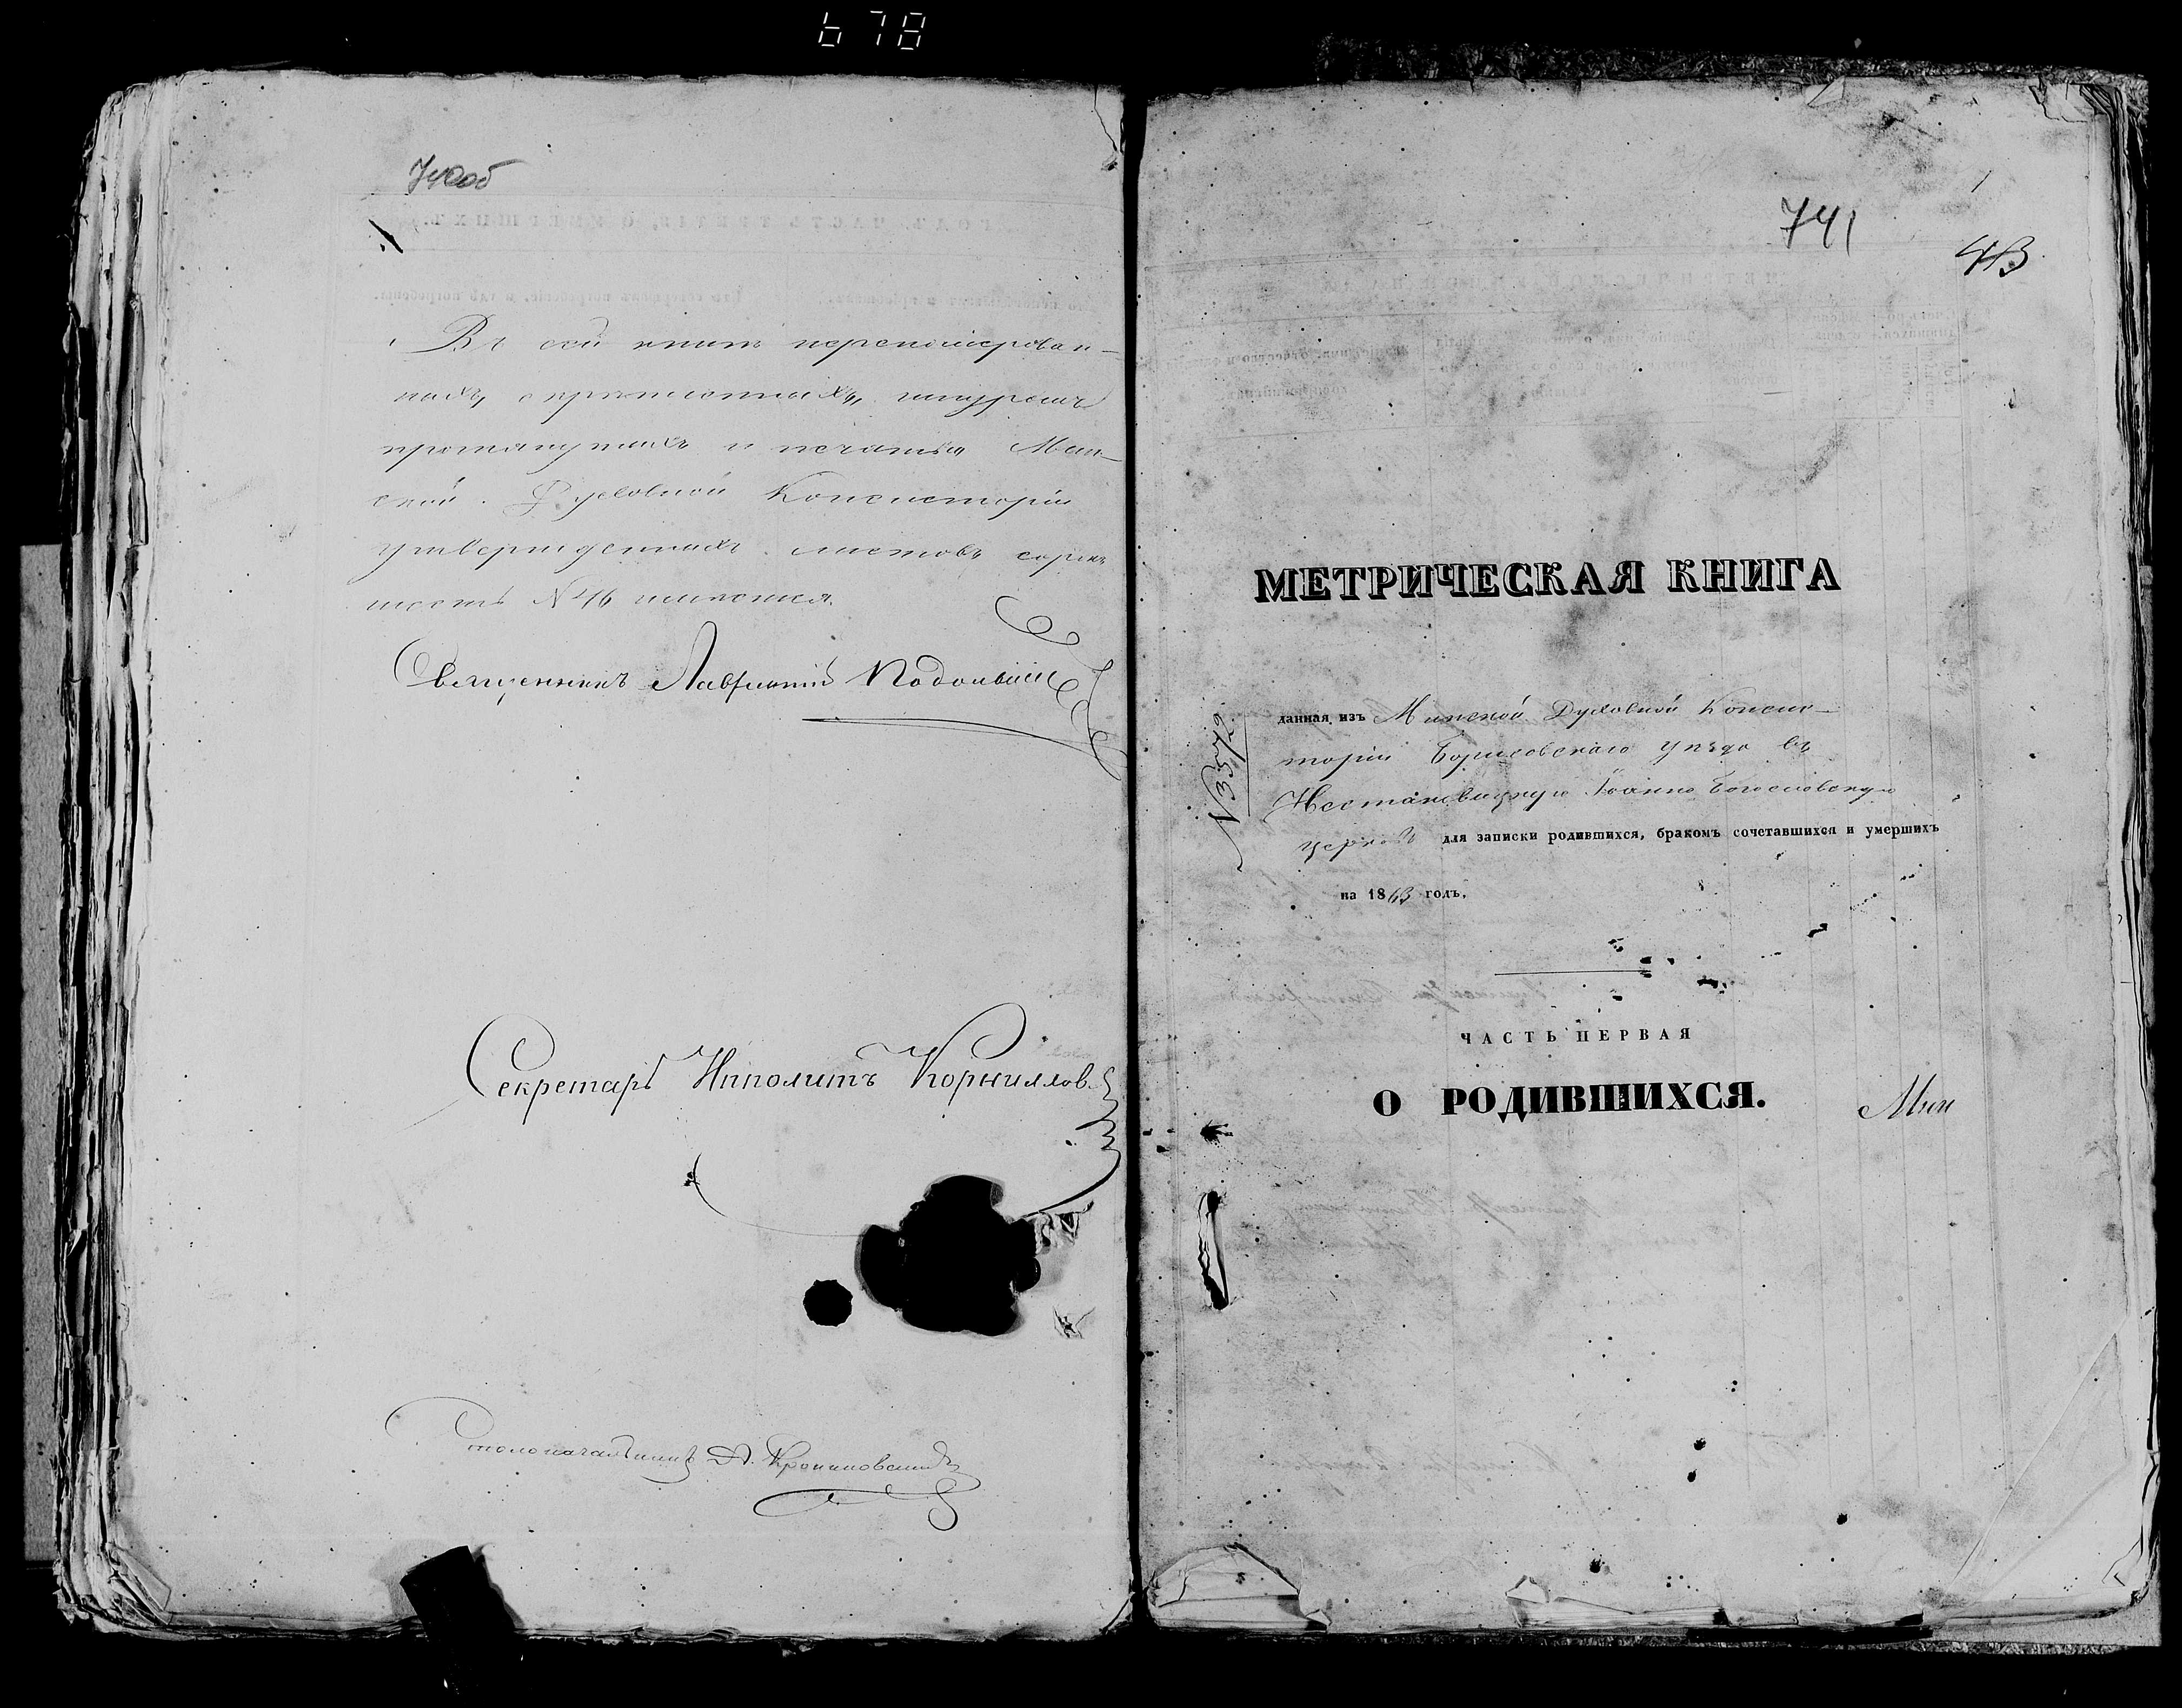 678
740об
Въ сей книгѣ перенумерован-
ныхъ, скрѣпленныхъ, шнуромъ
протянутыхъ и печатью Мин-
ской Духовной Консисторіи
утвержденныхъ листовъ сорокъ
шесть №46 имѣется.
Священникъ Лаврентій
Секретарь Ипполитъ Корниллов
Столоначальникъ
741
1
МЕТРИЧЕСКАЯ КНИГА
№3572
данная изъ Минской Духовной Консис-
торіи Борисовскаго уѣзда въ
Нестановицкую Іоанно Богословскую
церковь для записки родившихся, бракомъ сочетавшихся и умершихъ
на 1863 годъ.
ЧАСТЬ ПЕРВАЯ
О РОДИВШИХСЯ.
Мин